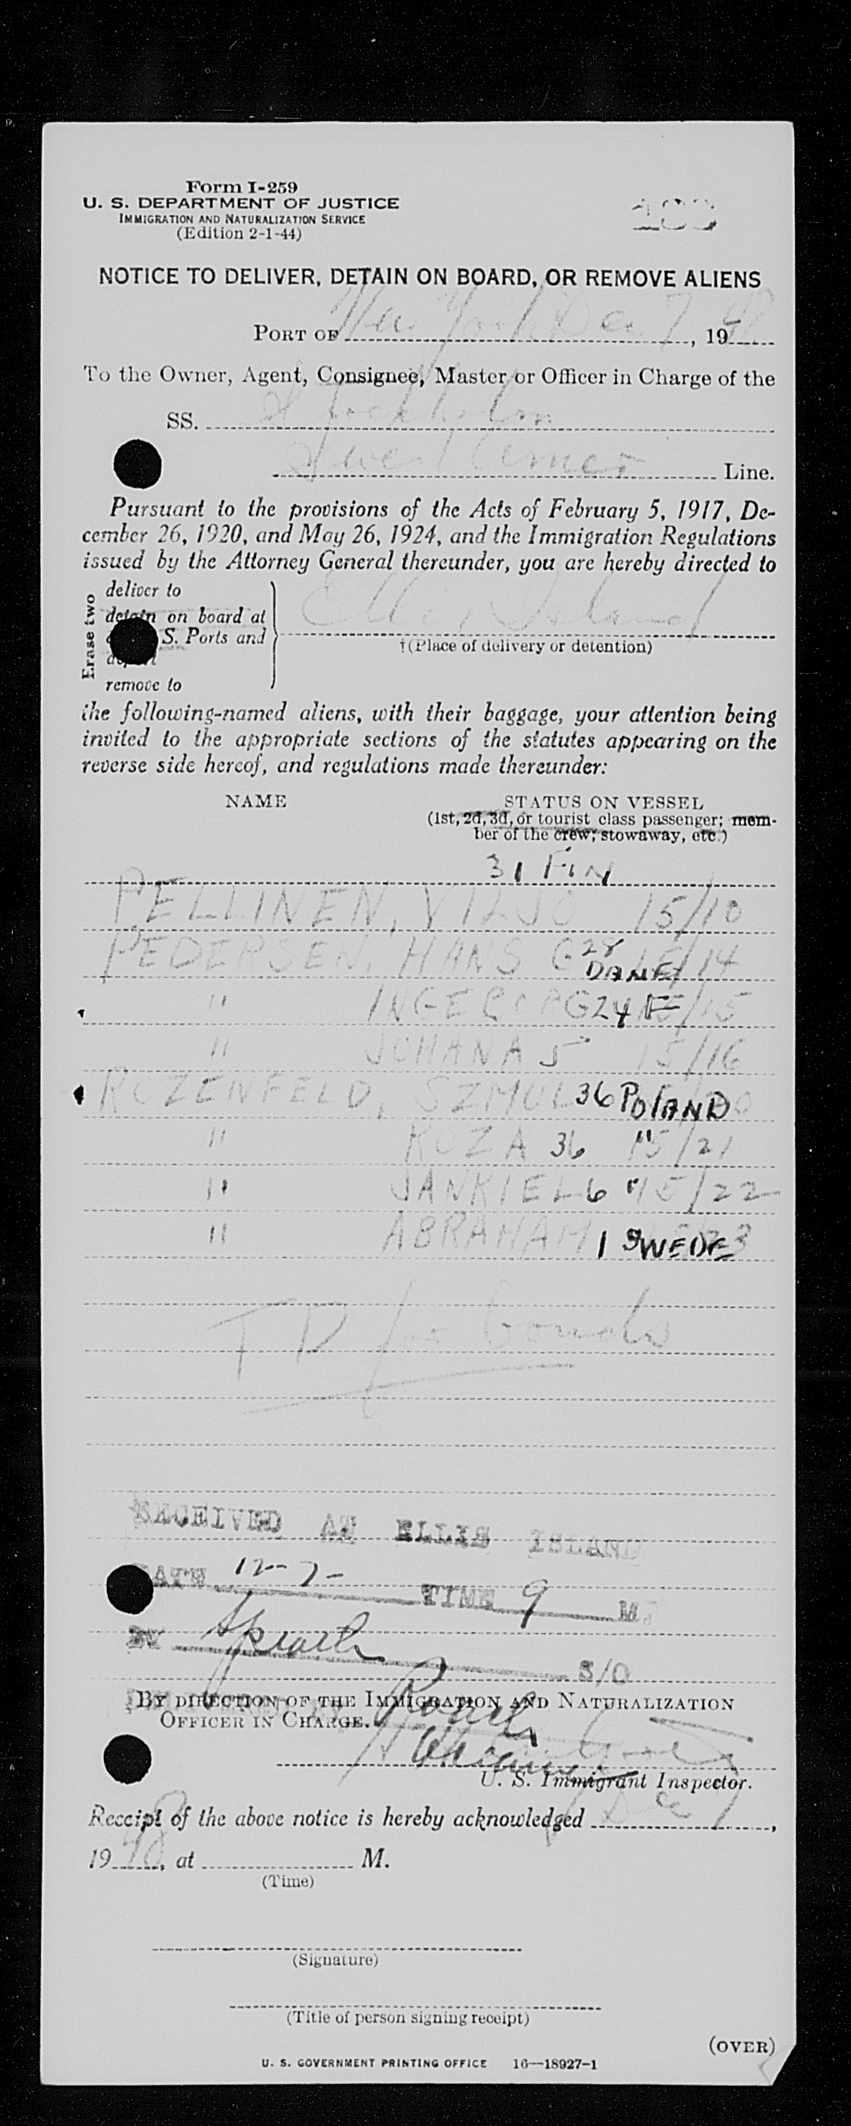 Form I-259
U. S. DEPARTMENT OF JUSTICE
IMMIGRATION AND NATURALIZATION SERVICE
(Edition 2-1-44)
NOTICE TO DELIVER, DETAIN ON BOARD, OR REMOVE ALIENS
PORT OF New York Dec 7, 1948
To the Owner, Agent, Consignee, Master or Officer in Charge of the
SS. Stockholm
Swed Amer Line.
Pursuant to the provisions of the Acts of February 5, 1917, De-
cember 26, 1920, and May 26, 1924, and the Immigration Regulations
issued by the Attorney General thereunder, you are hereby directed to
Erase two
deliver to
detain on board at
S. Ports and
remove to
Ellis Island
†(Place of delivery or detention)
the following-named aliens, with their baggage, your attention being
invited to the appropriate sections of the statutes appearing on the
reverse side hereof, and regulations made thereunder:
NAME STATUS ON VESSEL
(1st, 2d, 3d, or tourist class passenger; mem-
ber of the crew; stowaway, etc.)
31 FIN
PELLINEN, VILJO 15/10
PEDERSEN, HANS G 28 DANE 15/14
" INGEBORG 24 15/15
" JOHANA 5 15/16
ROZENFELD, SZMUL 36 POLAND
" ROZA 36 " 15/21
" JANKIEL 6 " 15/22
" ABRAHAM 1 SWEDE
TD for bonds
RECEIVED AT ELLIS ISLAND
DATE 12-7- TIME 9 M.
BY S/O
BY DIRECTION OF THE IMMIGRATION AND NATURALIZATION
OFFICER IN CHARGE.
U. S. Immigrant Inspector.
Receipt of the above notice is hereby acknowledged Dec 7,
1948, at M.
(Time)
(Signature)
(Title of person signing receipt)
(OVER)
U. S. GOVERNMENT PRINTING OFFICE 16—18927-1